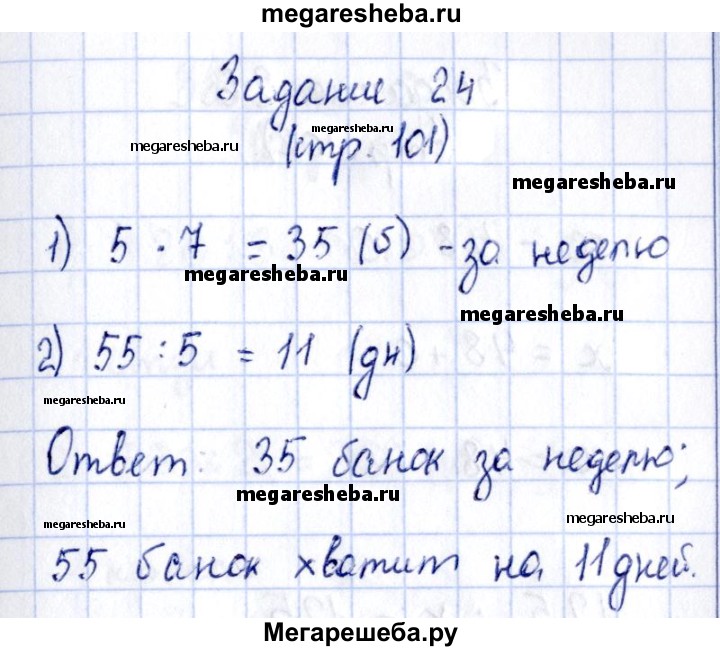 megaresheba.ru
Задание 24
megaresheba.ru
megaresheba.ru
(стр. 101)
megaresheba.ru
1) 5 · 7 = 35 (б) - за неделю
megaresheba.ru
megaresheba.ru
2) 55 : 5 = 11 (дн)
megaresheba.ru
Ответ: 35 банок за неделю;
megaresheba.ru
megaresheba.ru
megaresheba.ru
55 банок хватит на 11 дней.
Мегарешеба.ру